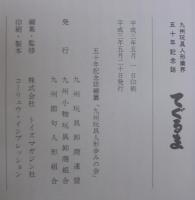 九州玩具人形業界
五十年記念誌
てぐるま
平成三年五月 一 日印刷
平成三年五月二十日発行
五十年記念誌編纂「九州玩具人形歩みの会」
発 行 九州玩具卸商連盟
九州小物玩具卸商組合
九州節句人形組合
編集・監修 株式会社 トイズマガジン社
印刷・製本 コーリュウ・インプレッション